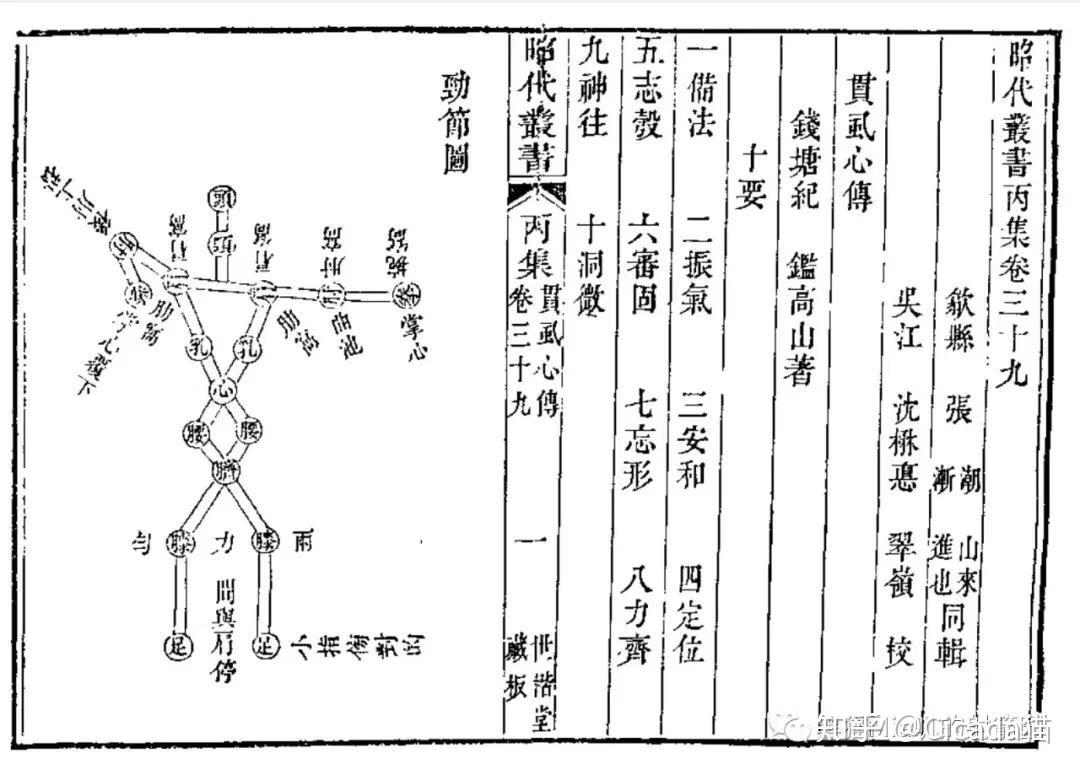 昭代叢書丙集卷三十九
歙縣 張 潮 山來
漸 進也 同輯
吳江 沈楙悳 翠嶺 校
貫虱心傳
錢塘紀 鑑高山著
十要
一備法 二振氣 三安和 四定位
五志彀 六審固 七忘形 八力齊
九神往 十洞微
昭代叢書 丙集 貫虱心傳 卷三十九 一 世楷堂藏板
勁節圖
頭
肩窩
肩窩
肘窩
腕窩
肘
掌心
曲池
肋窩
肋窩
乳 乳
心
腰 腰
臍
膝 力 膝
間與肩停
足 足
小指微對的